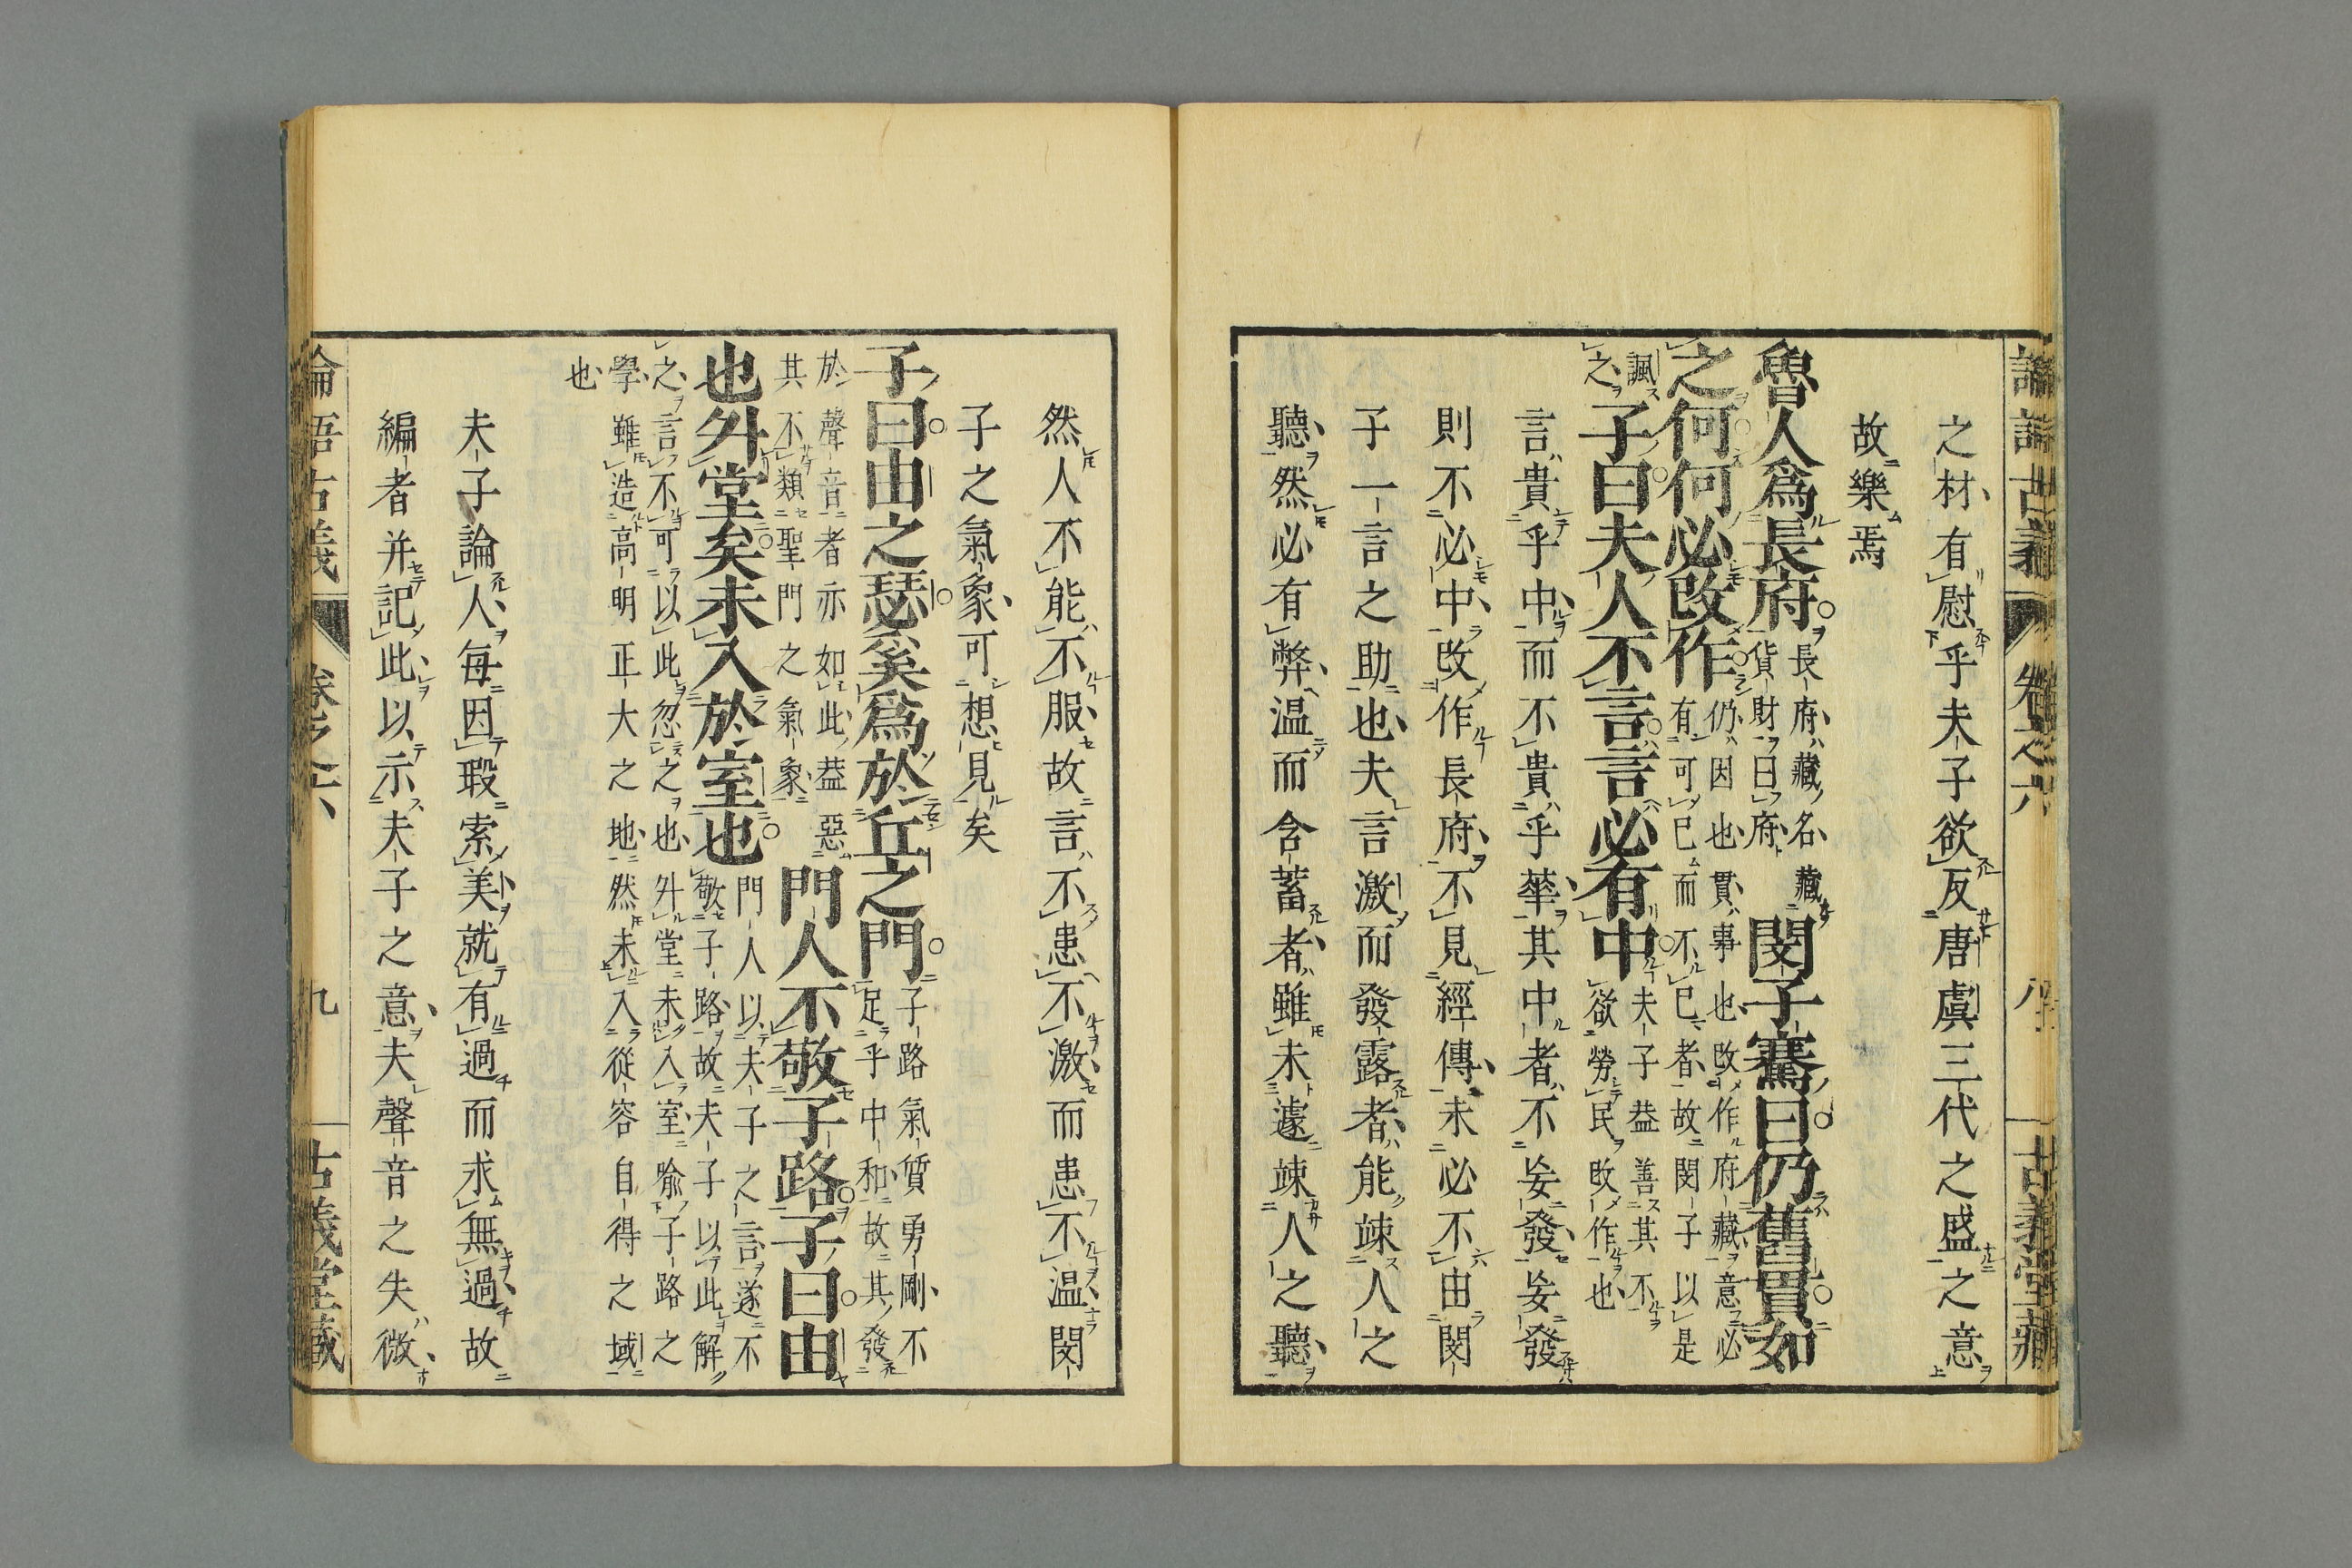 論語古義 卷之六 八 古義堂藏
之材有慰乎夫子欲反唐虞三代之盛之意
故樂焉
魯人爲長府長府藏名藏貨財曰府閔子騫曰仍舊貫如
之何何必改作仍因也貫事也改作府藏意必有可已而不已者故閔子以是
諷之子曰夫人不言言必有中夫子益善其不欲勞民改作也
言貴乎中而不貴乎華其中者不妄發妄發
則不必中改作長府不見經傳未必不由閔
子一言之助也夫言激而發露者能竦人之
聽然必有弊温而含蓄者雖未遽竦人之聽
然人不能不服故言不患不激而患不温閔
子之氣象可想見矣
子曰由之瑟奚爲於丘之門子路氣質勇剛不足乎中和故其發
於聲音者亦如此益惡其不類聖門之氣象門人不敬子路子曰由
也升堂矣未入於室也門人以夫子之言遂不敬子路故夫子以此解
之言不可以此忽之也升堂未入室喩子路之
學雖造高明正大之地然未入從容自得之域
也
夫子論人每因瑕索美就有過而求無過故
編者并記此以示夫子之意夫聲音之失微
論語古義 卷之六 九 古義堂藏